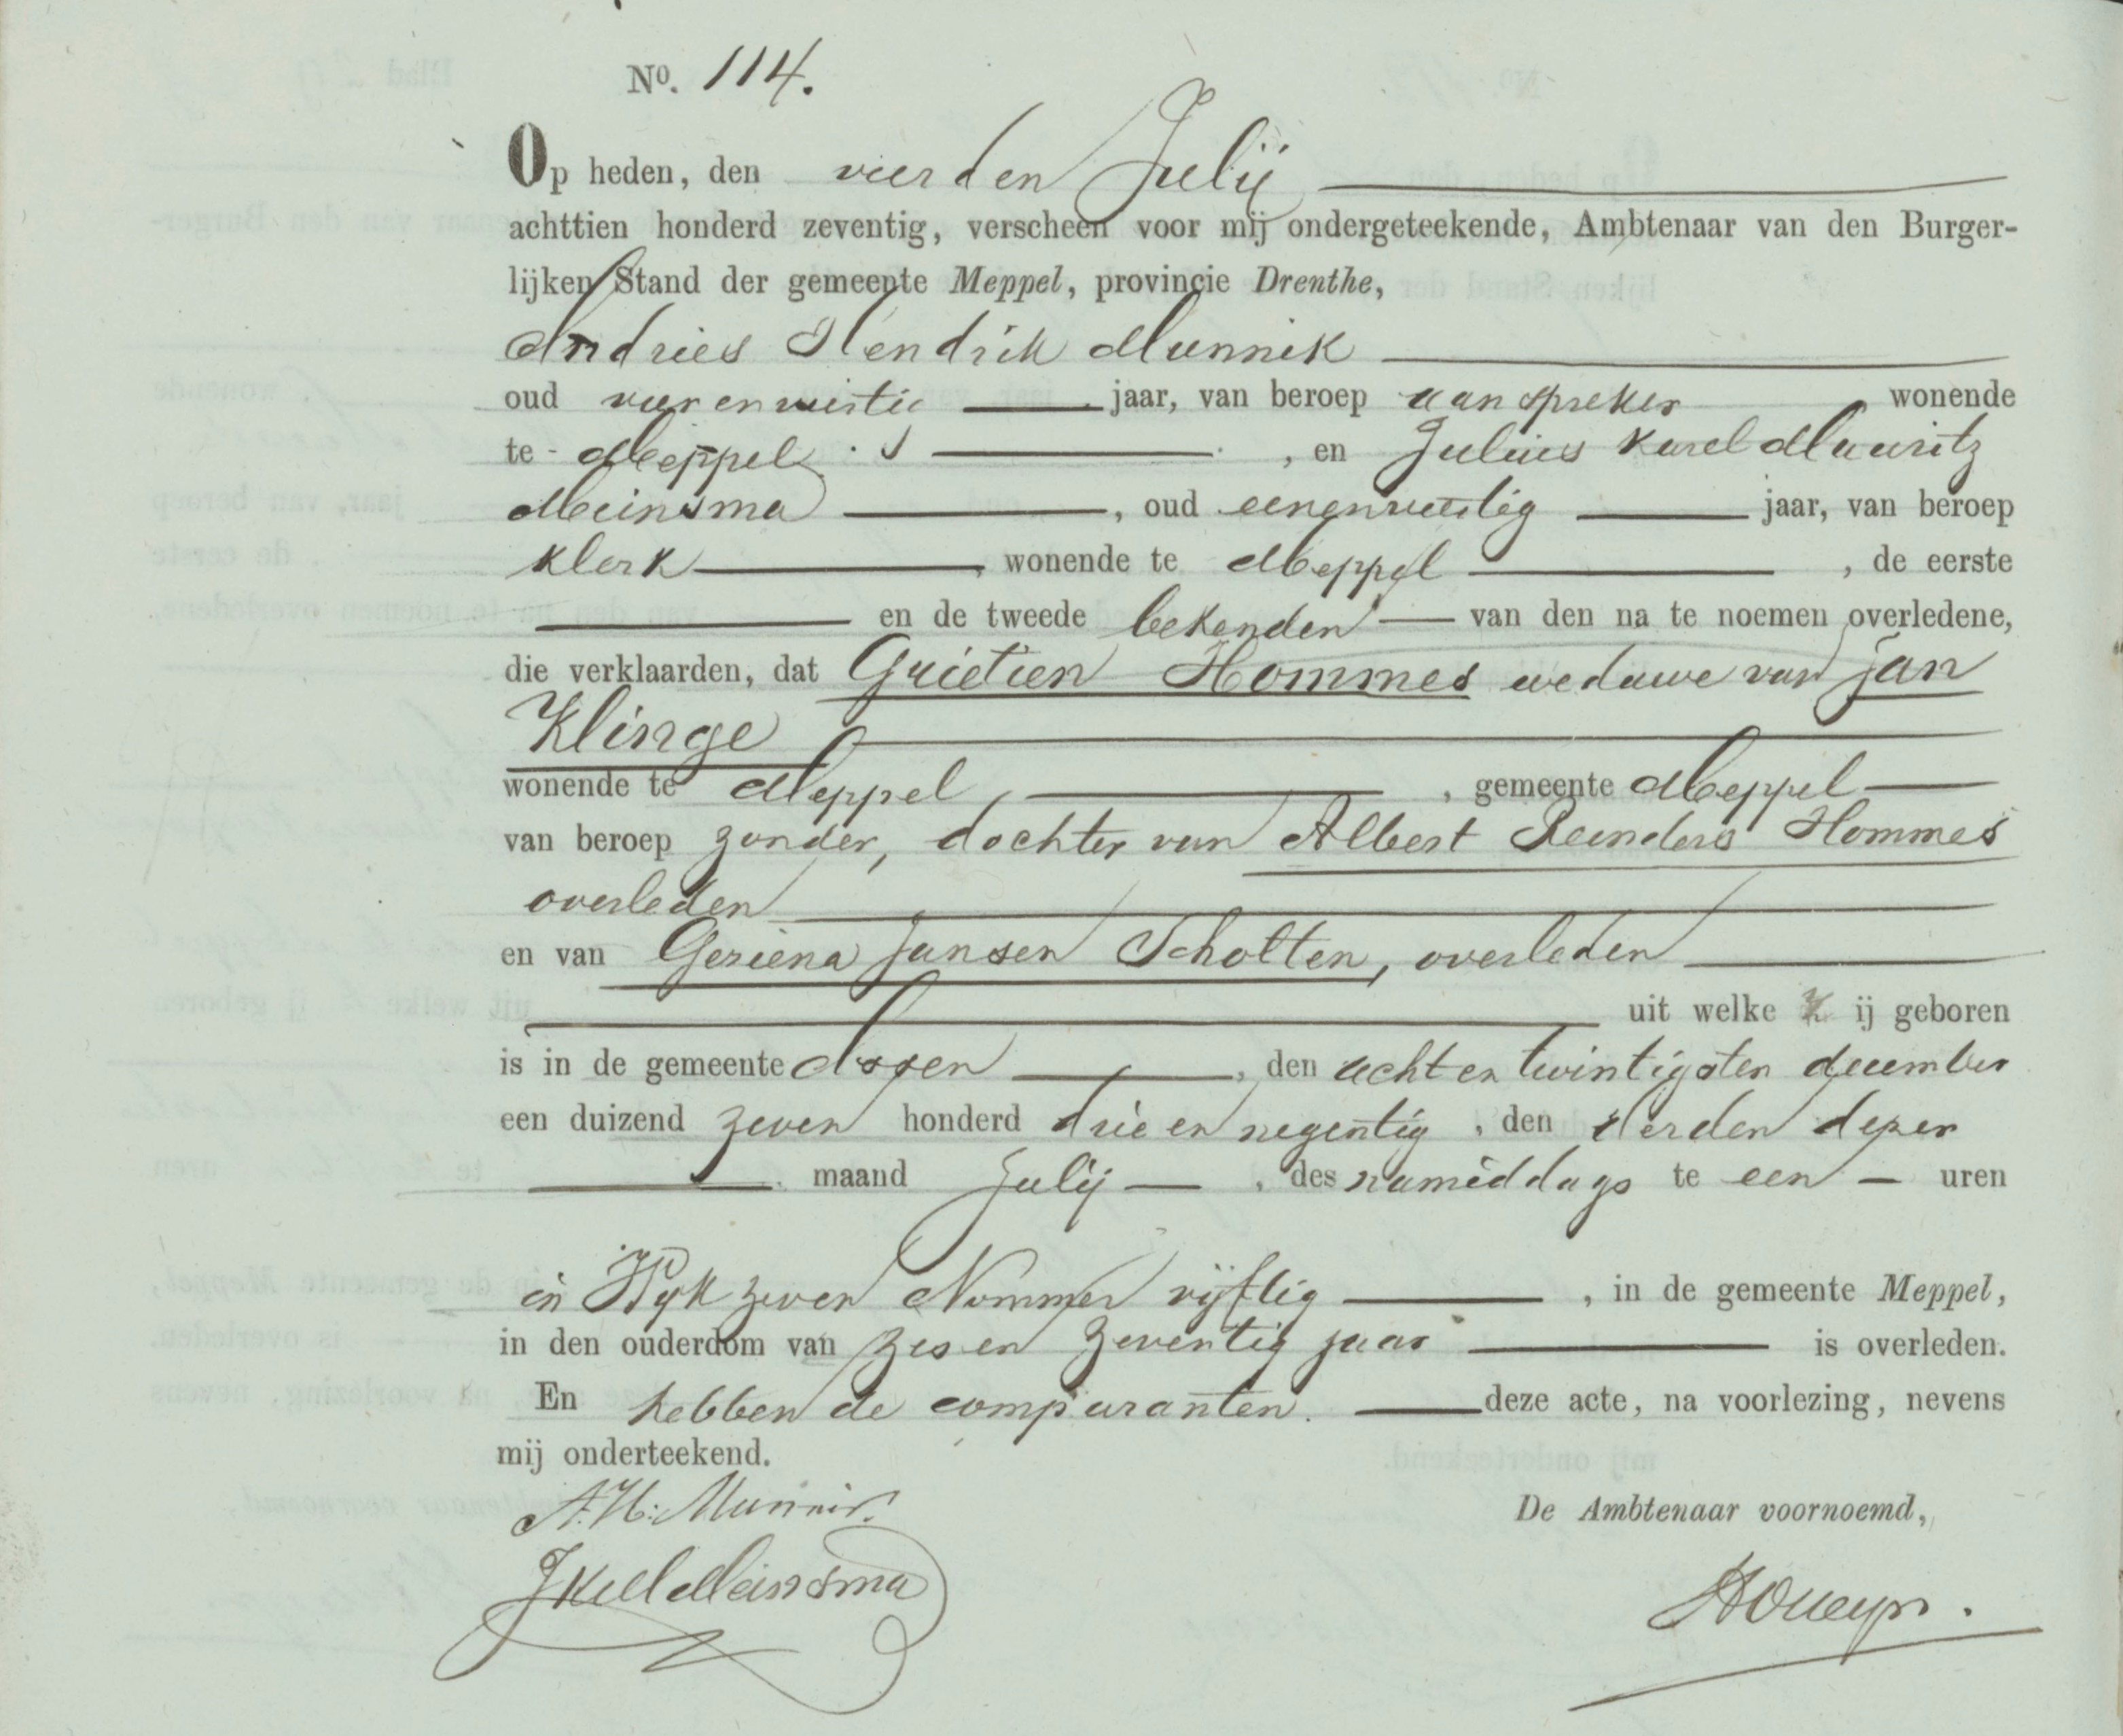 No. 114.
Op heden, den vierden Julij
achttien honderd zeventig, verscheen voor mij ondergeteekende, Ambtenaar van den Burger-
lijken Stand der gemeente Meppel, provincie Drenthe,
Andries Hendrik Munnik
oud vierenveertig jaar, van beroep aanspreker wonende
te Meppel, en Julius Karel Mauritz
Meinsma, oud eenenveertig jaar, van beroep
klerk, wonende te Meppel, de eerste
en de tweede bekenden van den na te noemen overledene,
die verklaarden, dat Grietien Hommes weduwe van Jan
Klinge
wonende te Meppel, gemeente Meppel
van beroep zonder, dochter van Albert Reinders Hommes
overleden
en van Geziena Jansen Scholten, overleden
uit welke Z ij geboren
is in de gemeente Assen, den acht en twintigsten december
een duizend zeven honderd drie en negentig, den derden dezer
maand Julij, des namiddags te een uren
in Wijk zeven Nommer vijftig, in de gemeente Meppel,
in den ouderdom van zes en zeventig jaar is overleden.
En hebben de comparanten. deze acte, na voorlezing, nevens
mij onderteekend.
A. H: Munnik.
De Ambtenaar voornoemd,
JKMMeinsma